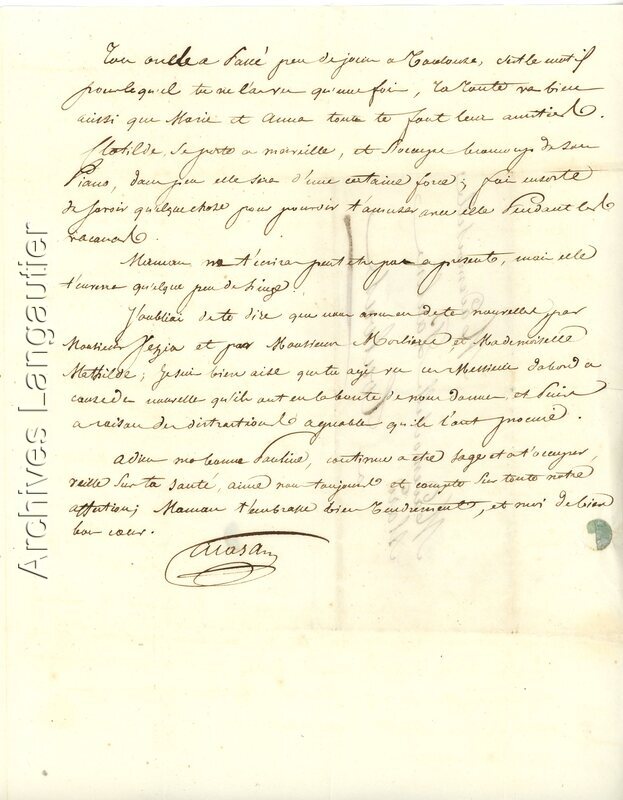 Ton oncle a Passé peu de jours a Toulouse, c'est le motif
pour lequ'il tu ne l'as vu qu'une fois, ta tante va bien
aussi que Marie et Anna toute te font leur amitiés.
Clotilde, se porte a merveille, et s'occupe beaucoup de son
Piano, dans peu elle sera d'une certaine force; fai ensorte
de savoir quelque chose pour pouvoir t'amuser avec elle Pendant les
vacances.
Maman ne t'écrira peut etre pas a present, mais elle
t'enverra quelque peu de linge.
J'oubliai de te dire que nous avons eu de te nouvelles par
Monsieur et par Monsieur Morliere et Mademoiselle
Mathilde; Je suis bien aise que tu aye vu ces Messieurs d'abord a
cause des nouvelle qu'ils ont eu la bonté de nous donner, et Puis
a raison des distractions agreable qu'ils t'ont procuré.
adieu ma bonne Pauline, continue a etre sage et a t'occuper,
veille sur ta santé, aime nous toujours et compte sur toute notre
affection; Maman t'embrasse bien Tendrement, et moi de bien
bon cœur.
Archives Langautier